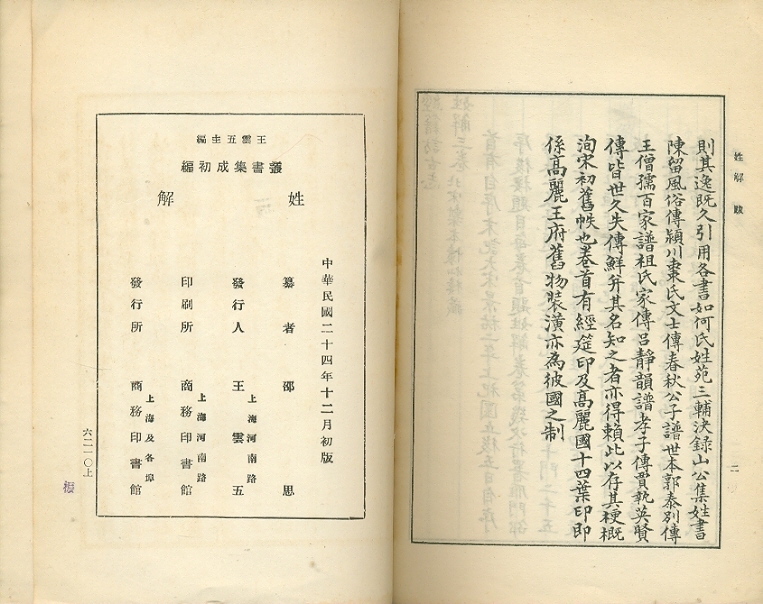 姓解 跋
二
則其逸既久引用各書如何氏姓苑三輔決録山公集姓書
陳留風俗傳潁川棗氏文士傳春秋公子譜世本郭泰别傳
王僧孺百家譜祖氏家傳呂靜韻譜孝子傳賈執英賢
傳皆世久失傳鮮并其名知之者亦得賴此以存其梗概
洵宋初舊帙也卷首有經筵印及高麗國十四葉印即
係高麗王府舊物裝潢亦為彼國之制
王雲五主編
叢書集成初編
姓解
中華民國二十四年十二月初版
纂者 邵思
發行人 王雲五
上海河南路
印刷所 商務印書館
上海河南路
發行所 商務印書館
上海及各埠
六二一〇上